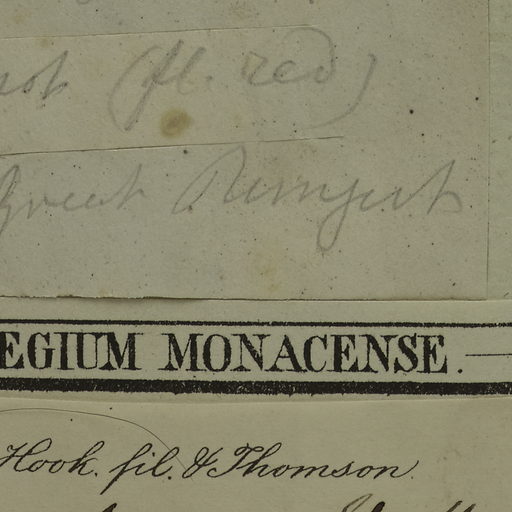 (fl. red)
Great Rungit
EGIUM MONACENSE.
Hook. fil. & Thomson